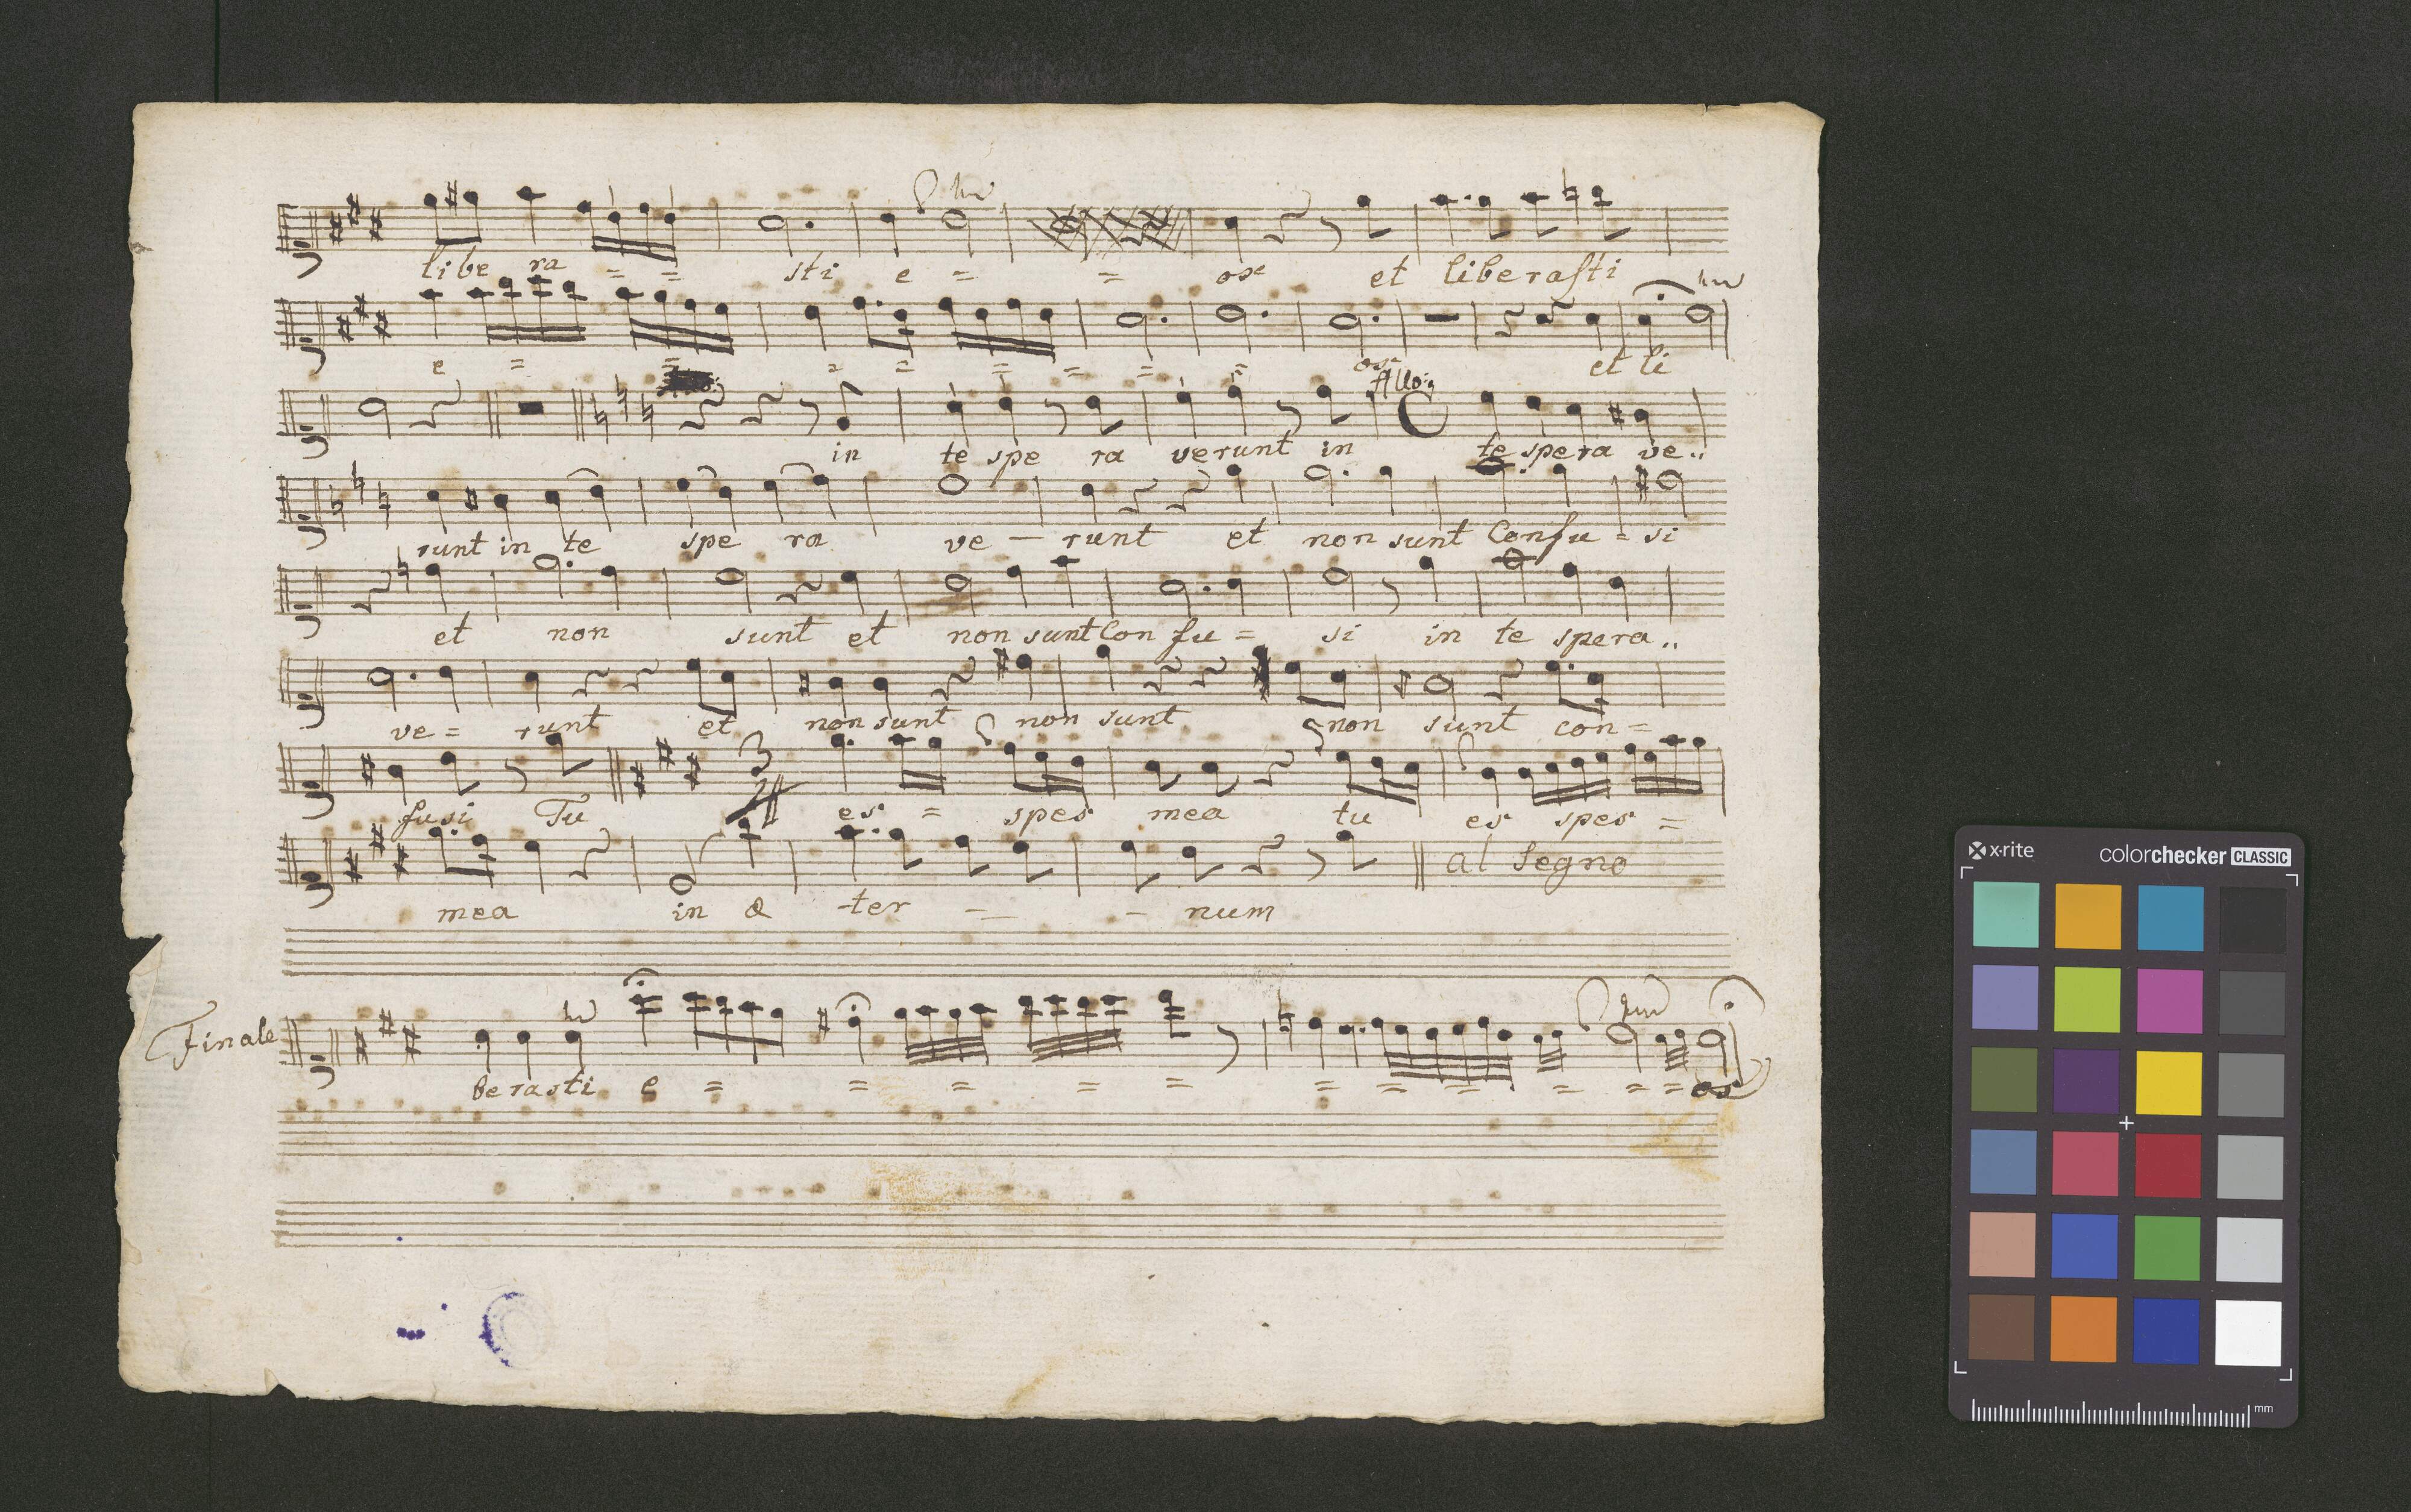 libe ra = = sti e = = os et liberasti
e = = = = = = = = os et li
Allo:
in te spe ra verunt in te spera ve..
runt in te spe ra ve - runt et non sunt Confu = si
et non sunt et non sunt Con fu = si in te spera..
ve = runt et non sunt non sunt non sunt con =
3
fusi Tu es = spes mea tu es spes =
mea in æ -ter - - num al Segno
Finale
berasti e = = = = = = = = = = = os
x·rite colorchecker CLASSIC
mm